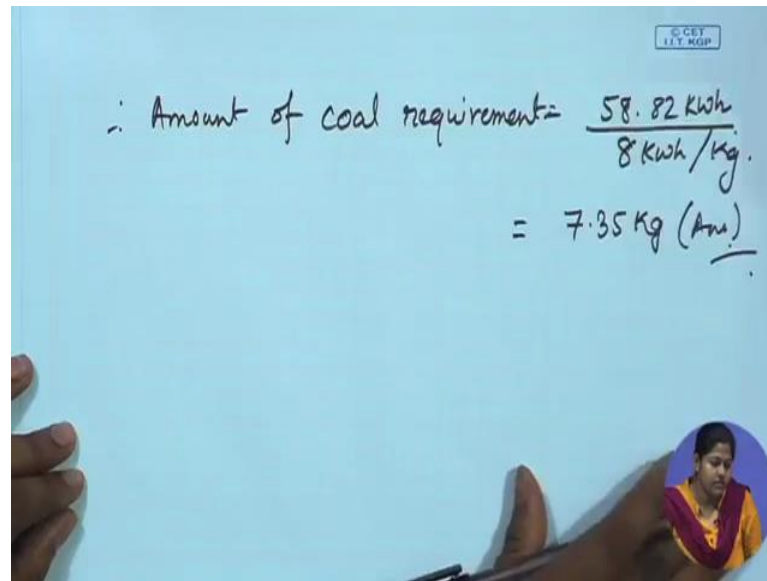 © CET
I.I.T. KGP
∴ Amount of coal requirement = 58.82 Kwh
8 Kwh/Kg.
= 7.35 Kg (Ans)